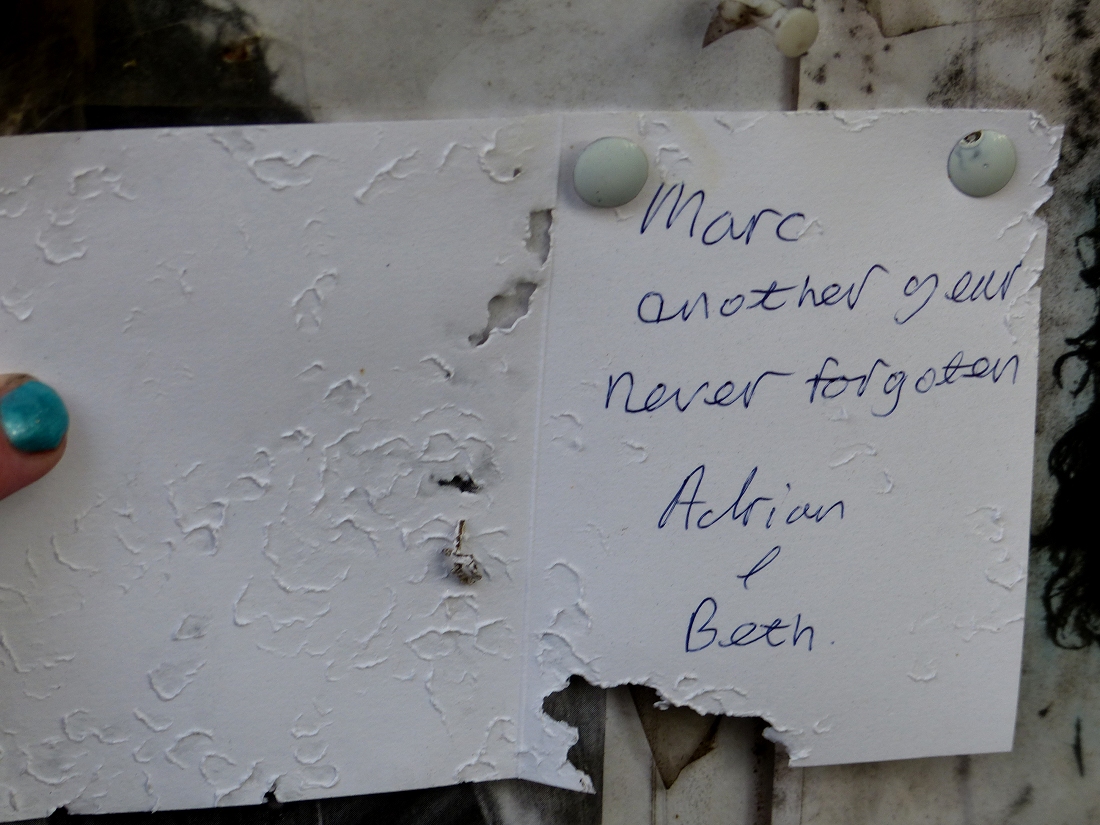 Marc
another year
never forgoten
Adrian
&
Beth.